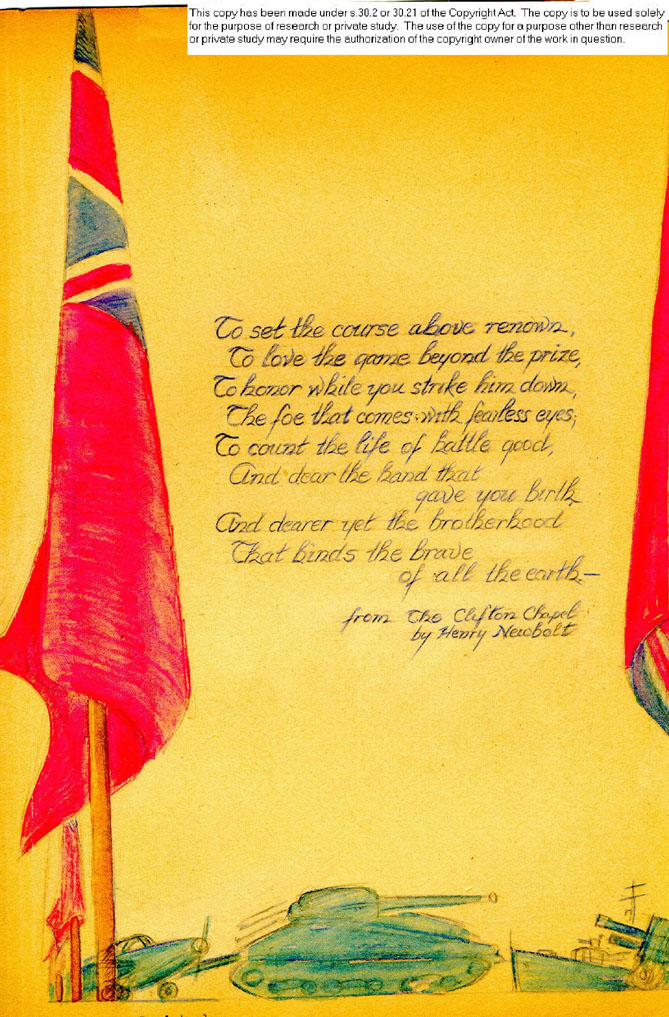 This copy has been made under s.30.2 or 30.21 of the Copyright Act. The copy is to be used solely
for the purpose of research or private study. The use of the copy for a purpose other than research
or private study may require the authorization of the copyright owner of the work in question.
To set the course above renown,
To love the game beyond the prize,
To honor while you strike him down,
The foe that comes with fearless eyes;
To count the life of battle good,
And dear the hand that
gave you birth
And dearer yet the brotherhood
That binds the brave
of all the earth—
from The Clifton Chapel
by Henry Newbolt